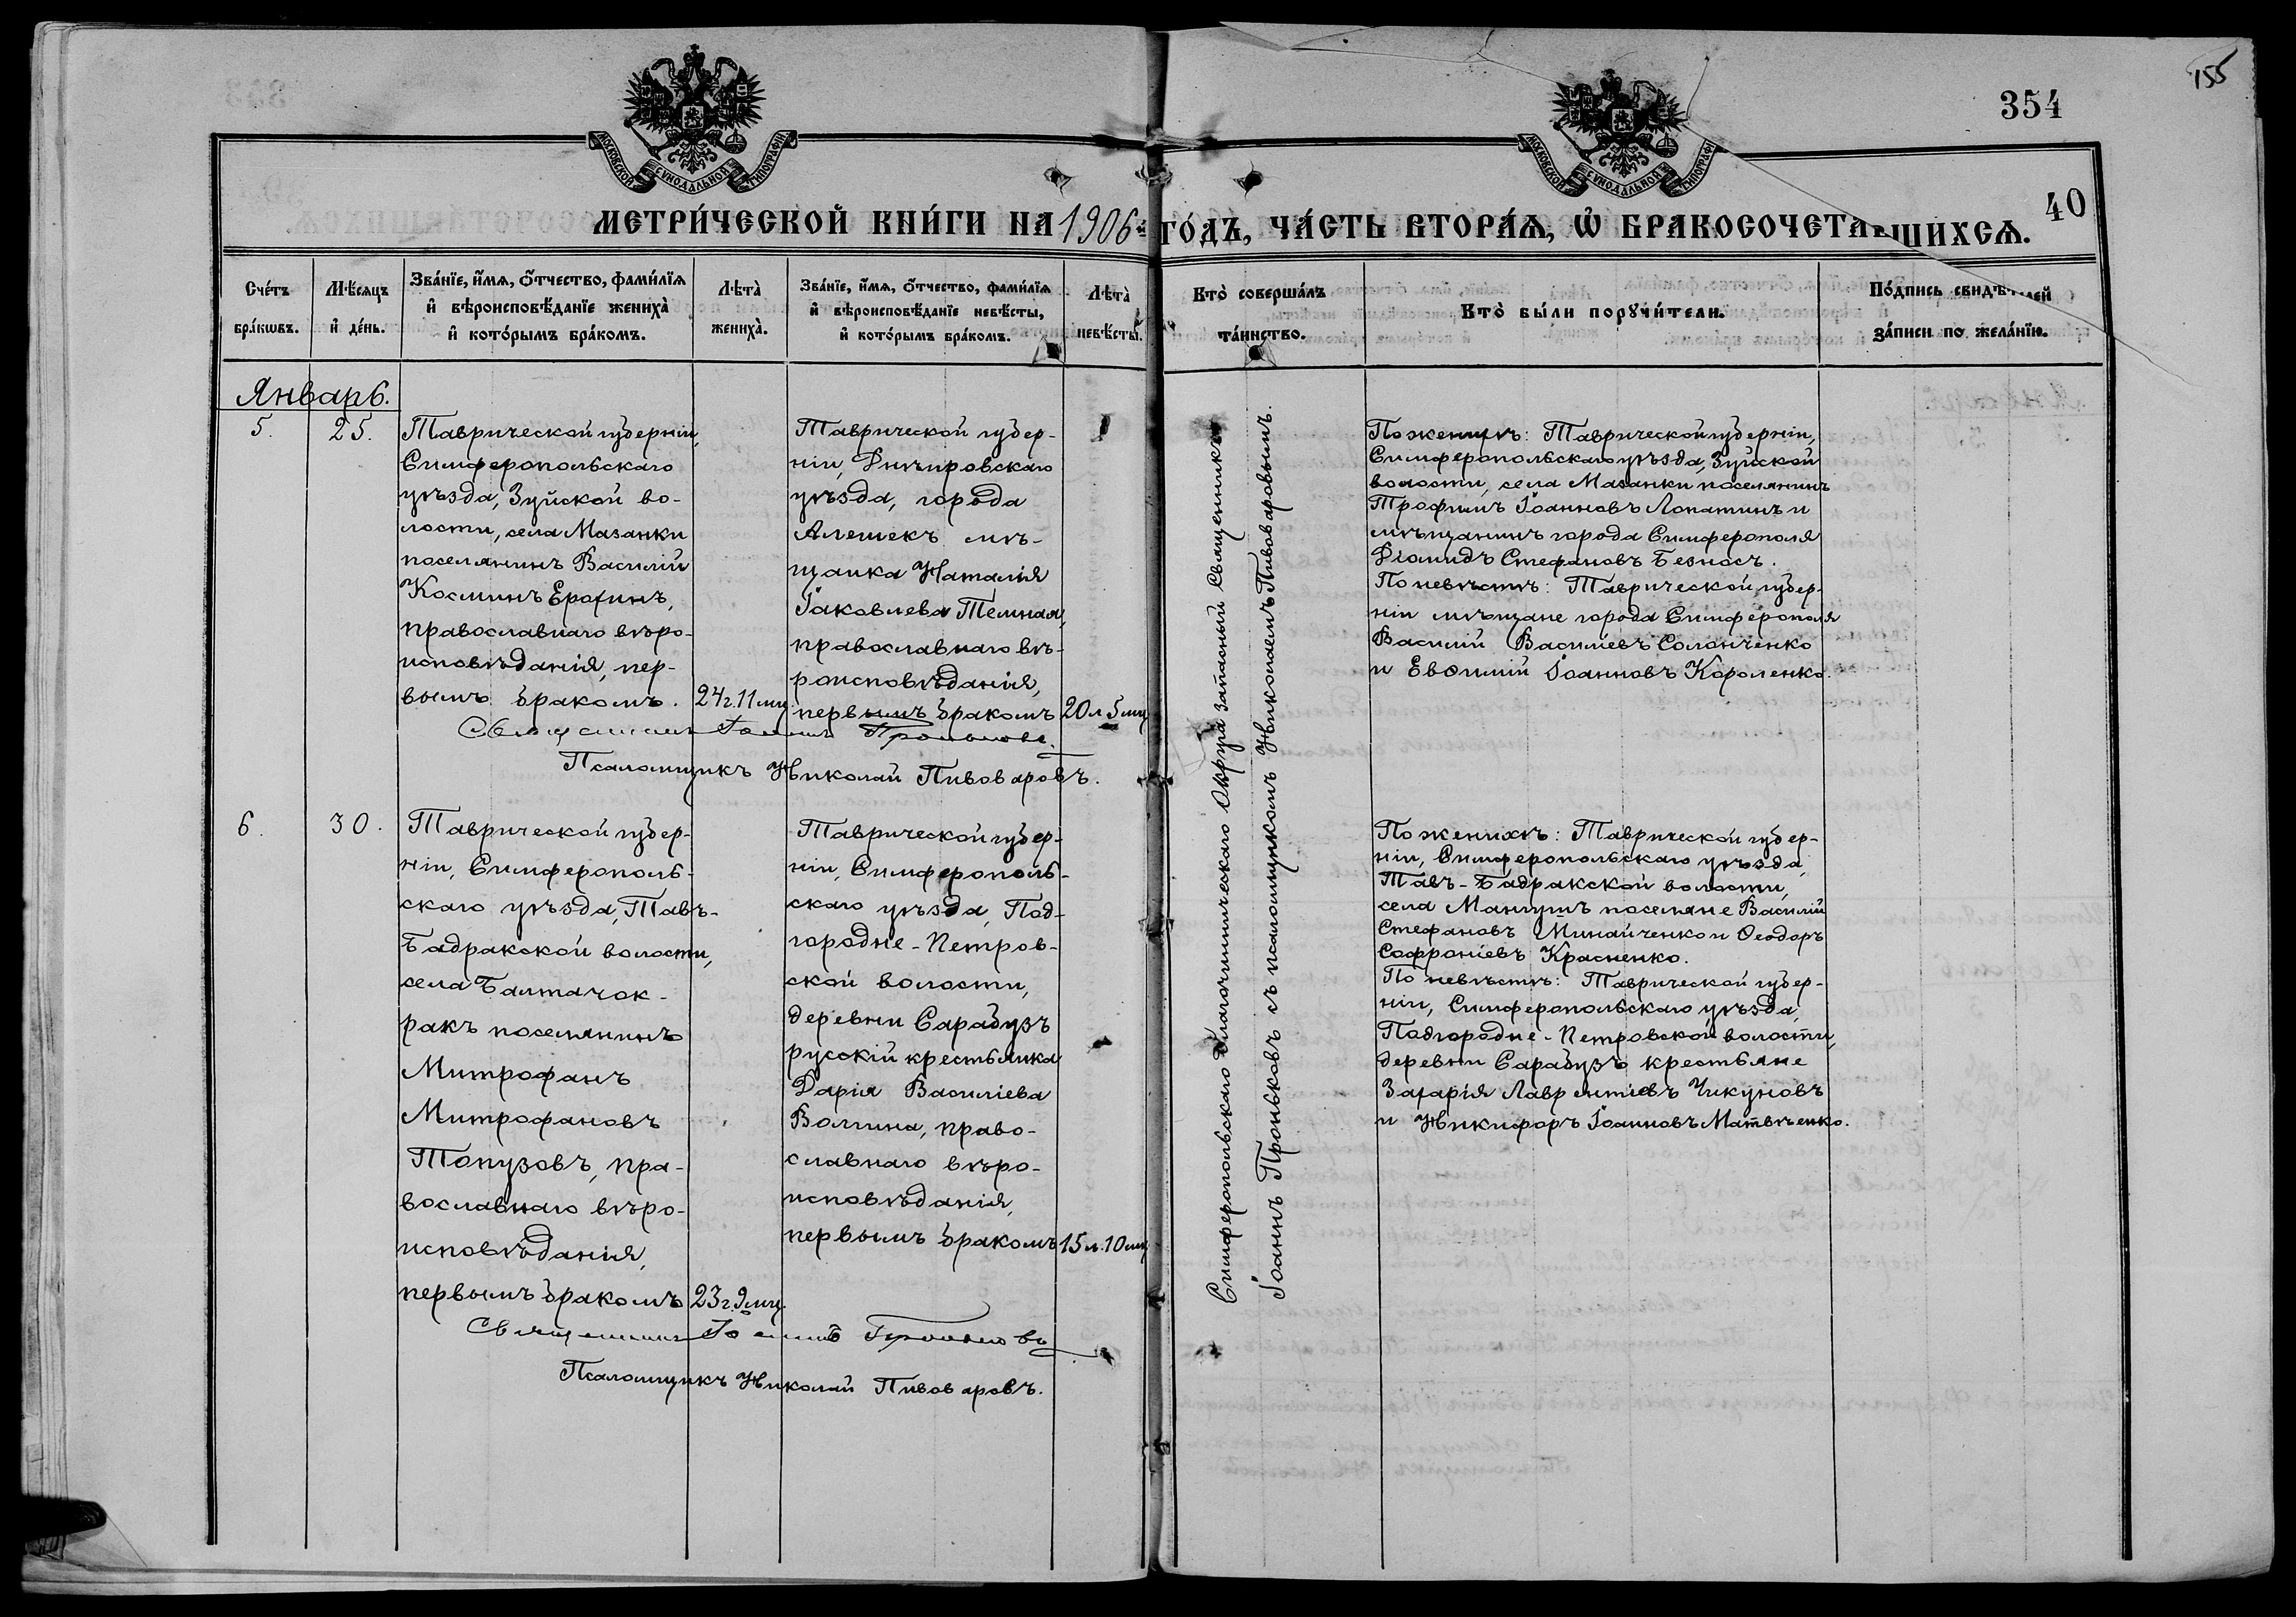 155
354
40
МОСКОВСКОЙ СУНОДАЛЬНОЙ ТИПОГРАФІИ
МОСКОВСКОЙ СУНОДАЛЬНОЙ ТИПОГРАФІИ
МЕТРИ́ЧЕСКОЙ КНИ́ГИ НА 1906й ГО́ДЪ, ЧА́СТЬ ВТОРА́Ѧ, Ѽ БРАКОСОЧЕТАВШИХСѦ.
Сче́тъ бра́кѡвъ.
Мѣ́сяцъ и҆ де́нь.
Зва́нїе, и҆́мѧ, ѻ҆́тчество, фами́лїѧ
и҆ вѣроисповѣ́данїе жениха̀
и҆ кото́рымъ бра́комъ.
Лѣта̀ жениха̀.
Зва́нїе, и҆́мѧ, ѻ҆́тчество, фами́лїѧ
и҆ вѣроисповѣ́данїе невѣ́сты,
и҆ кото́рымъ бра́комъ.
Лѣта̀ невѣ́сты.
Кто̀ соверша́лъ
та́инство.
Кто̀ бы́ли порꙋчи́тели.
По́дпись свидѣтелей
за́писи по жела́нїю.
Январь.
5.
25.
Таврической губерніи,
Симферопольскаго
уѣзда, Зуйской во-
лости, села Мазанки
поселянинъ Василій
Косминъ Ерохинъ,
православнаго вѣро-
исповѣданія, пер-
вымъ бракомъ.
24 г. 11 мц.
Таврической губер-
ніи, Днѣпровскаго
уѣзда, города
Алешекъ мѣ-
щанка Наталія
Іаковлева Темная,
православнаго вѣ-
роисповѣданія,
первымъ бракомъ
20 л. 5 мц
Священникъ Іоаннъ Проньковъ.
Псаломщикъ Николай Пивоваровъ.
Симферопольскаго Благочинническаго Округа запасный Священникъ
Іоаннъ Проньковъ съ псаломщикомъ Николаемъ Пивоваровымъ.
По женихѣ: Таврической губерніи,
Симферопольскаго уѣзда, Зуйской
волости, села Мазанки поселянинъ
Трофимъ Іоанновъ Лопатинъ и
мѣщанинъ города Симферополя
Діомидъ Стефановъ Безносъ.
По невѣстѣ: Таврической губер-
ніи мѣщане города Симферополя
Василій Василіевъ Солонченко
и Евѳимій Іоанновъ Короленко.
6.
30.
Таврической губер-
ніи, Симферополь-
скаго уѣзда, Тавъ-
Бадракской волости,
села Балтачок-
ракъ поселянинъ
Митрофанъ
Митрофановъ
Топузовъ, пра-
вославнаго вѣро-
исповѣданія,
первымъ бракомъ
23 г. 9 мц.
Таврической губер-
ніи, Симферополь-
скаго уѣзда, Под-
городне-Петров-
ской волости,
деревни Сарабузъ
русскій крестьянка
Дарія Василіева
Волгина, право-
славнаго вѣро-
исповѣданія,
первымъ бракомъ
15 л. 10 мц
Священникъ Іоаннъ Проньковъ
Псаломщикъ Николай Пивоваровъ.
По женихѣ: Таврической губер-
ніи, Симферопольскаго уѣзда,
Тавъ-Бадракской волости,
села Мангушъ поселяне Василій
Стефановъ Минайченко и Ѳеодоръ
Софроніевъ Красненко.
По невѣстѣ: Таврической губер-
ніи, Симферопольскаго уѣзда,
Подгородне-Петровской волости,
деревни Сарабузъ крестьяне
Захарія Лаврентіевъ Чикуновъ
и Никифоръ Іоанновъ Матвѣенко.